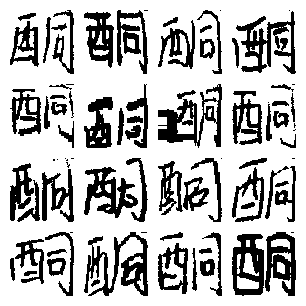 酮酮酮酮
酮酮酮酮
酮酮酮酮
酮酮酮酮